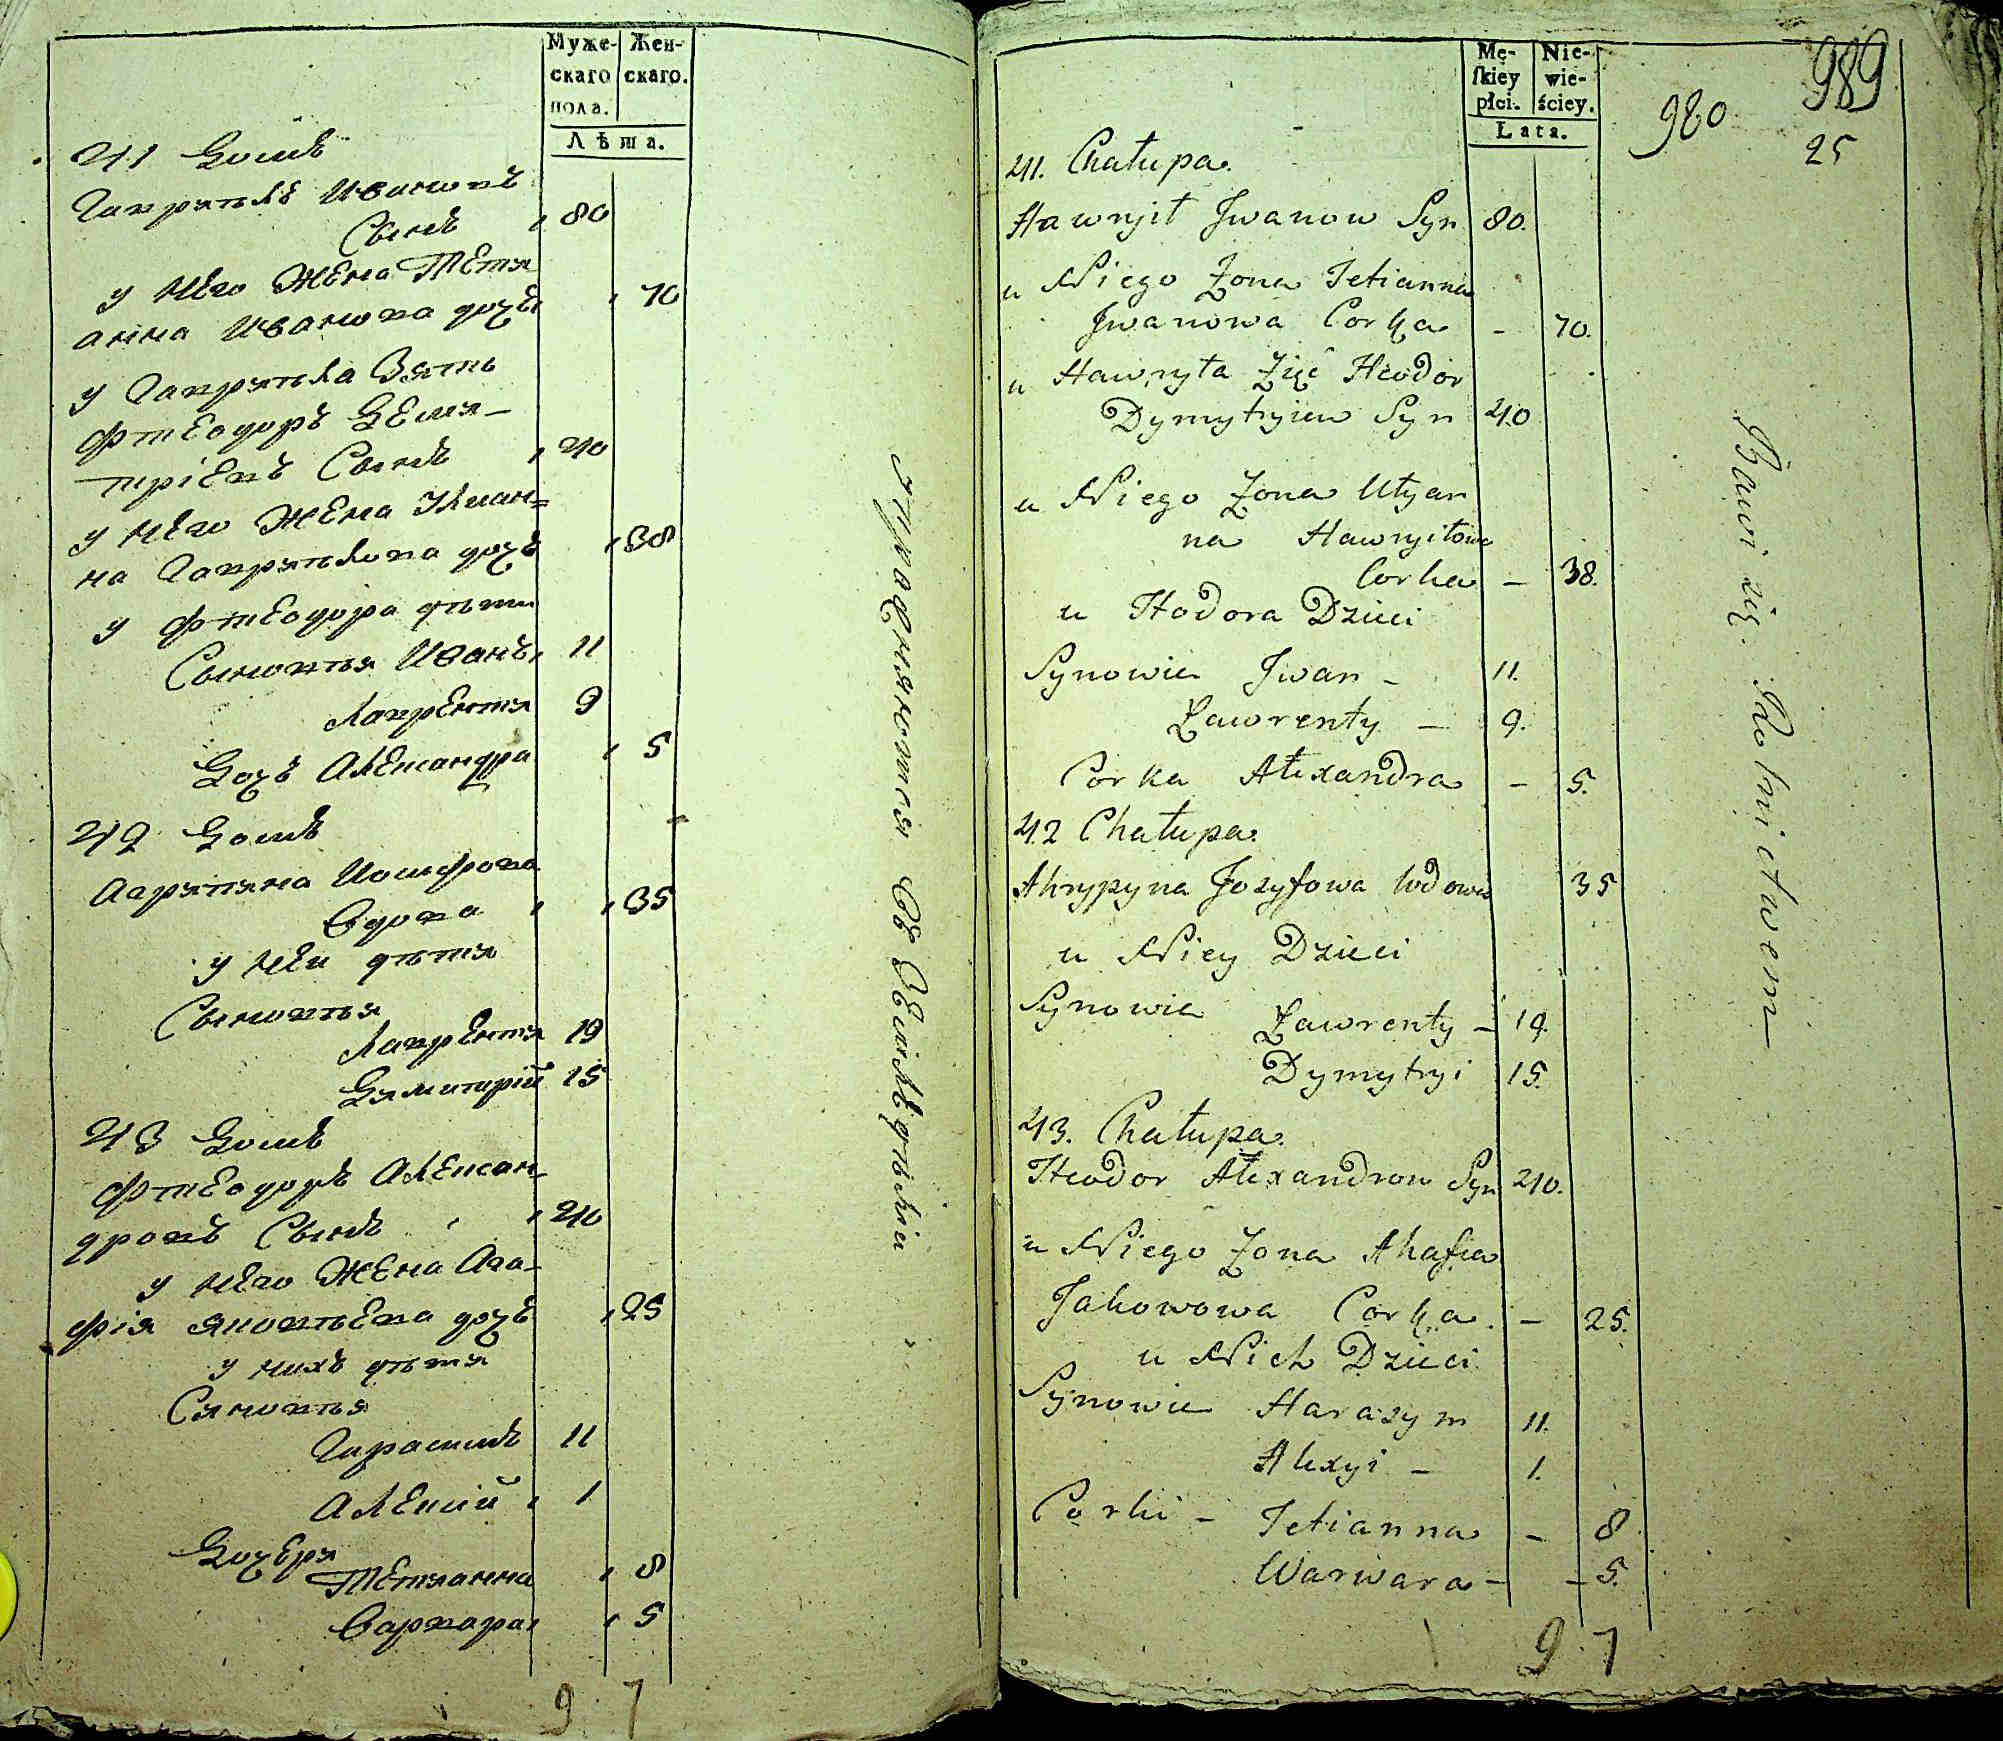 Муже-
скаго
пола.
Жен-
скаго.
Лѣта.
41 Домъ
Гаврилъ Ивановъ
Сынъ 80
у Него Жена Тетя
анна Иванова дочь 70
у Гаврила Зять
Фтеодоръ Деми-
тріевъ Сынъ 40
у Него Жена Улиан=
на Гаврилова дочь 38
у Фтеодора дѣти
Сыновья Иванъ 11
Лаврентя 9
Дочь Александра 5
42 Домъ
Агрипина Иосифова
Вдова 35
у Неи дѣтя
Сыновья
Лаврентя 19
Димитрій 15
43 Домъ
Фтеодоръ Алексан-
дровъ Сынъ 40
у Него Жена Ага-
фія Яковлева дочь 25
у нихъ дѣтя
Синовья
Гарасимъ 11
Алексій 1
Дочеря
Тетянна 8
Варвара 5
9 7
упражняются въ Земледѣлии
Mę-
ſkiey
płci.
Nie-
wie-
ściey.
Lata.
980
989
25
41. Chałupa.
Hawryił Jwanow Syn 80.
u Niego Żona Tetianna
Jwanowa Corka - 70.
u Hawryła Zięć Heodor
Dymytryiew Syn 40
u Niego Żona Ulyan
na Hawryiłowa
Corka - 38.
u Hodora Dzieci
Synowie Jwan - 11.
Ławrenty - 9.
Corka Alexandra - 5.
42 Chałupa.
Ahrypyna Jozyfowa Wdowa 35
u Niey Dzieci
Synowie Ławrenty - 19.
Dymytryi 15.
43. Chałupa.
Heodor Alexandrow Syn 40.
u Niego Żona Ahafia
Jakowowa Corka. - 25.
u Nich Dzieci
Synowie Harasym 11.
Alexyi - 1.
Corki - Tetianna - 8
Warwara - - 5.
9 7
Bawi się. Rolnictwem